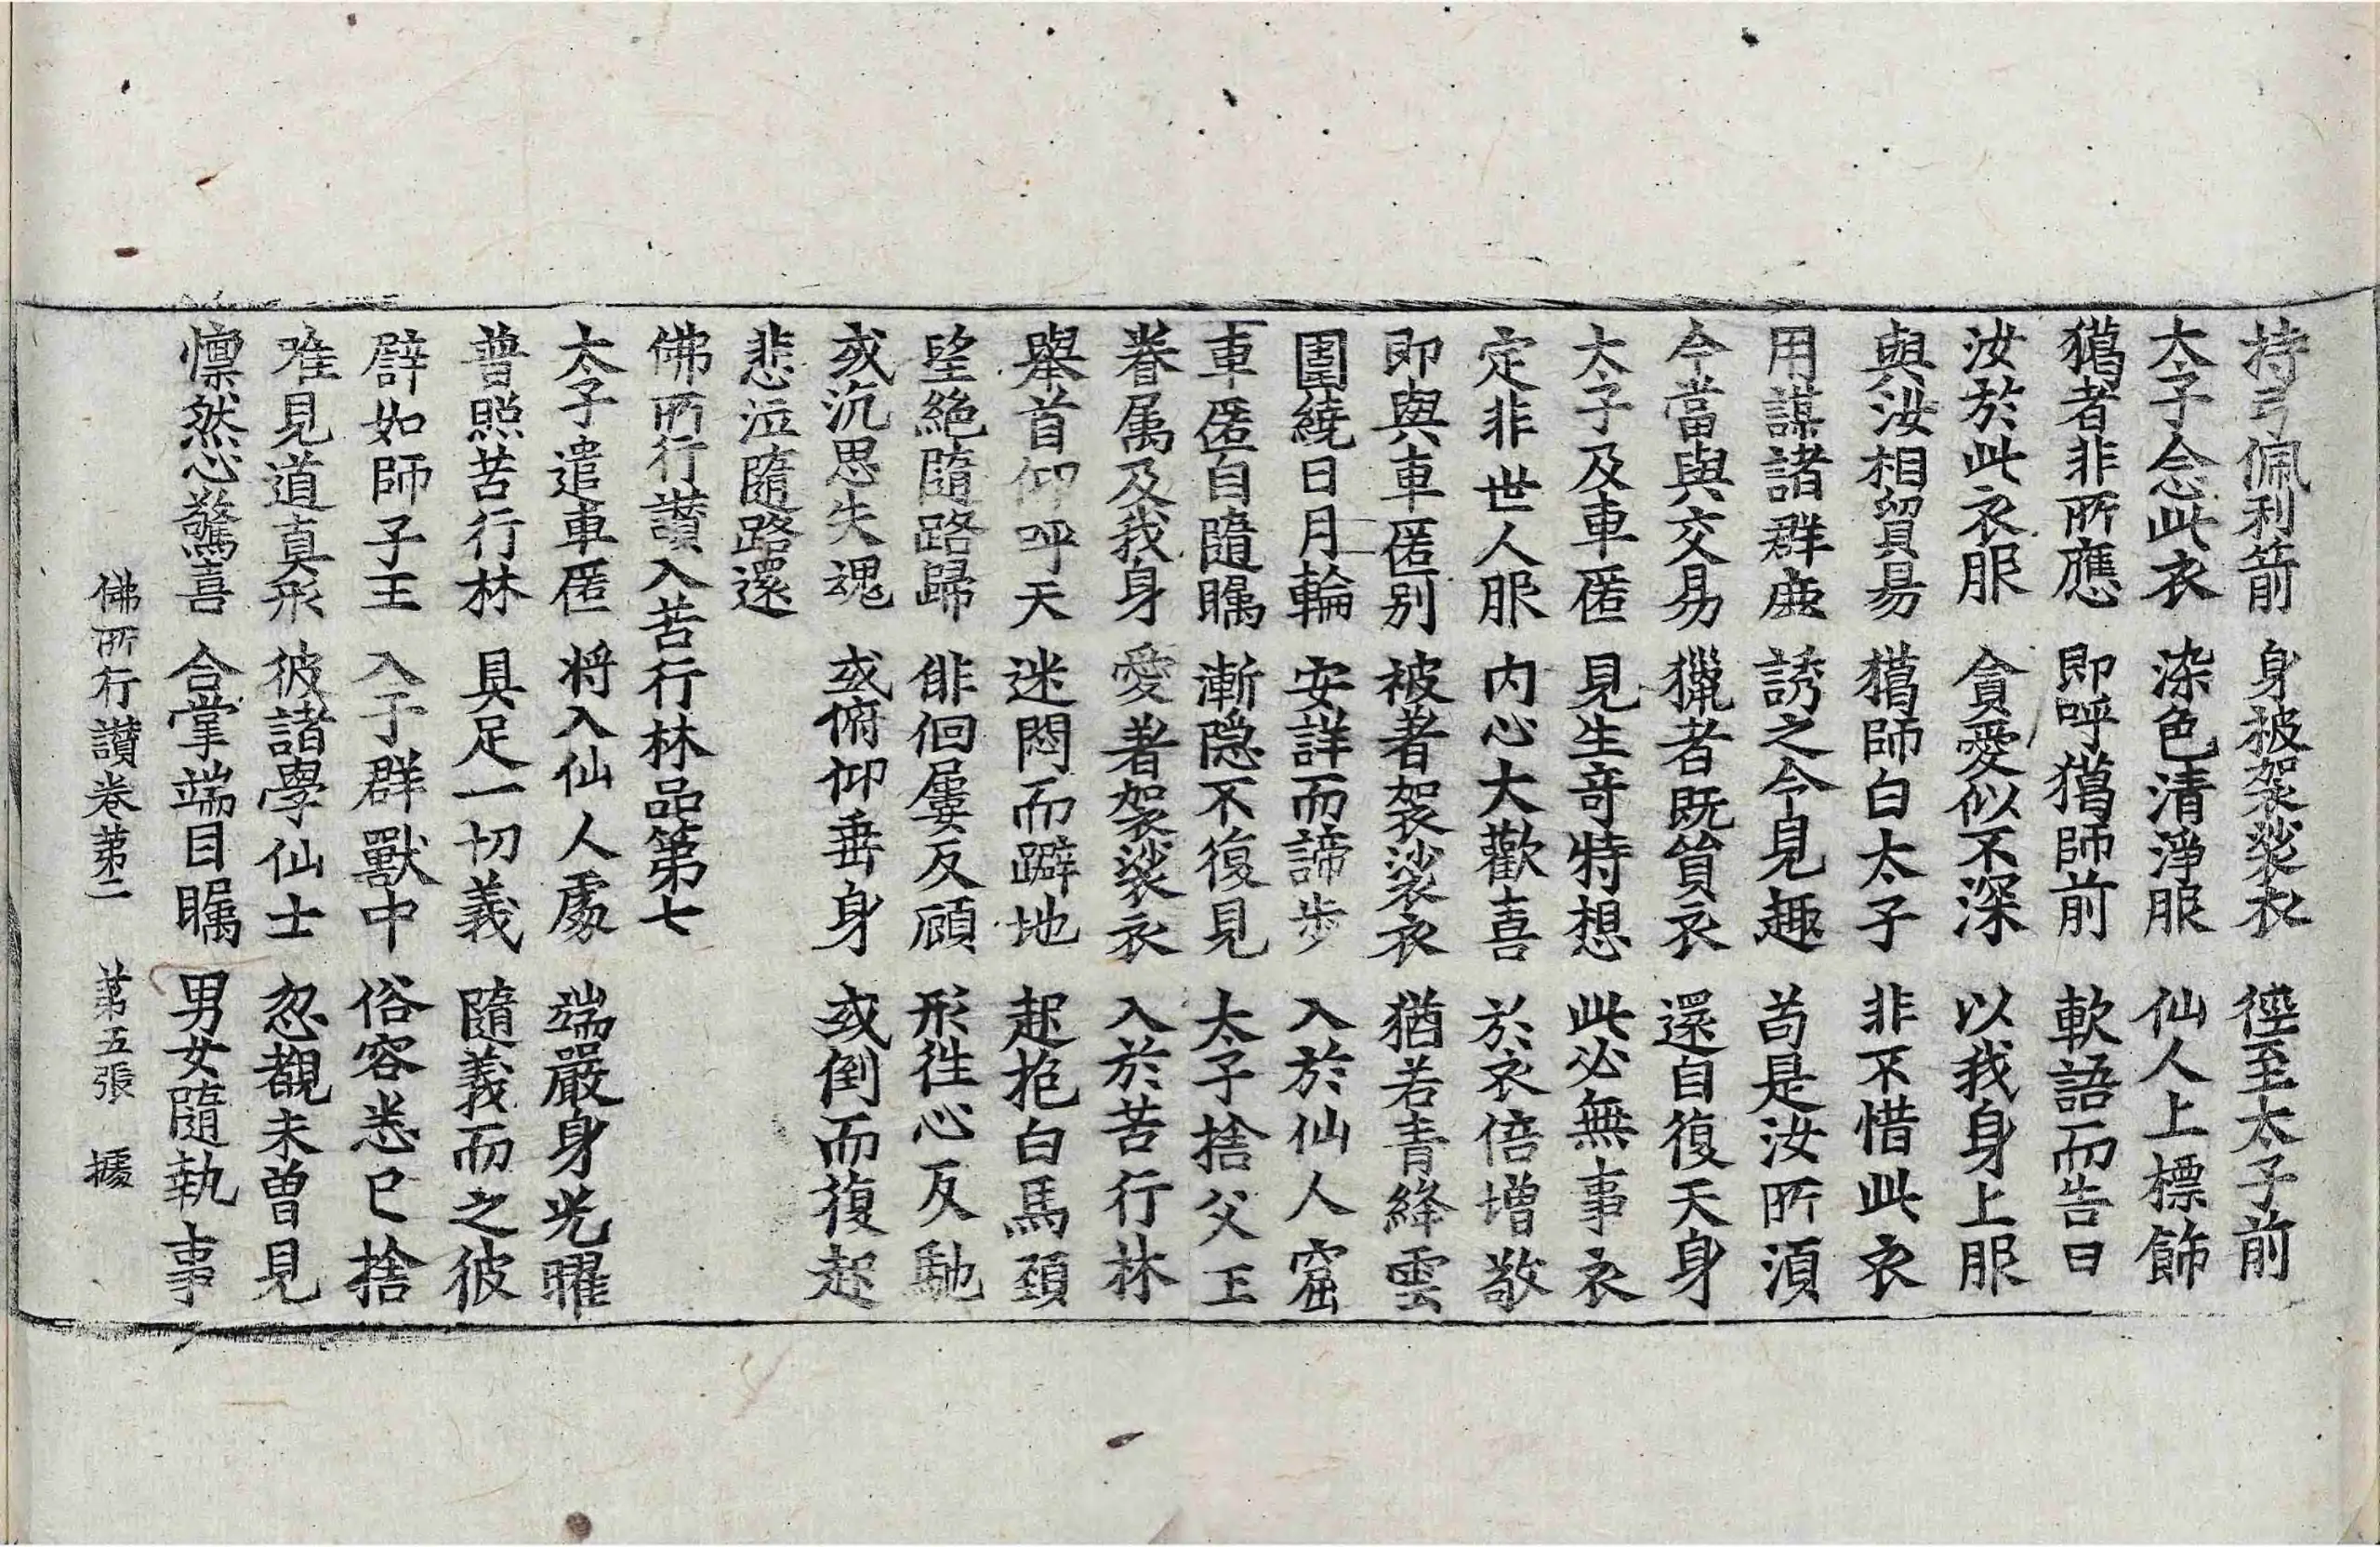 持弓佩利箭 身被袈裟衣 徑至太子前
太子念此衣 染色清淨服 仙人上標飾
獦者非所應 即呼獦師前 軟語而告曰
汝於此衣服 貪愛似不深 以我身上服
與汝相貿易 獦師白太子 非不惜此衣
用謀諸群鹿 誘之令見趣 苟是汝所湏
今當與交易 獵者既貿衣 還自復天身
太子及車匿 見生竒特想 此必無事衣
定非世人服 内心大歡喜 於衣倍增敬
即與車匿别 被著袈裟衣 猶若青絳雲
圍繞日月輪 安詳而諦步 入於仙人窟
車匿自隨矚 漸隐不復見 太子捨父王
眷属及我身 愛著袈裟衣 入於苦行林
舉首仰呼天 迷悶而躃地 起抱白馬頚
望絶隨路歸 俳佪屢反顧 形徃心反馳
或沉思失魂 或俯仰垂身 或倒而復起
悲泣隨路還
佛所行讃入苦行林品第七
太子遣車匿 将入仙人處 端嚴身光曜
普照苦行林 具足一切義 隨義而之彼
辟如師子王 入于群獸中 俗容悉已捨
唯見道真形 彼諸學仙士 忽覩未曽見
懍然心驚喜 合掌端目矚 男女隨執事
佛所行讃卷苐二 苐五張 據